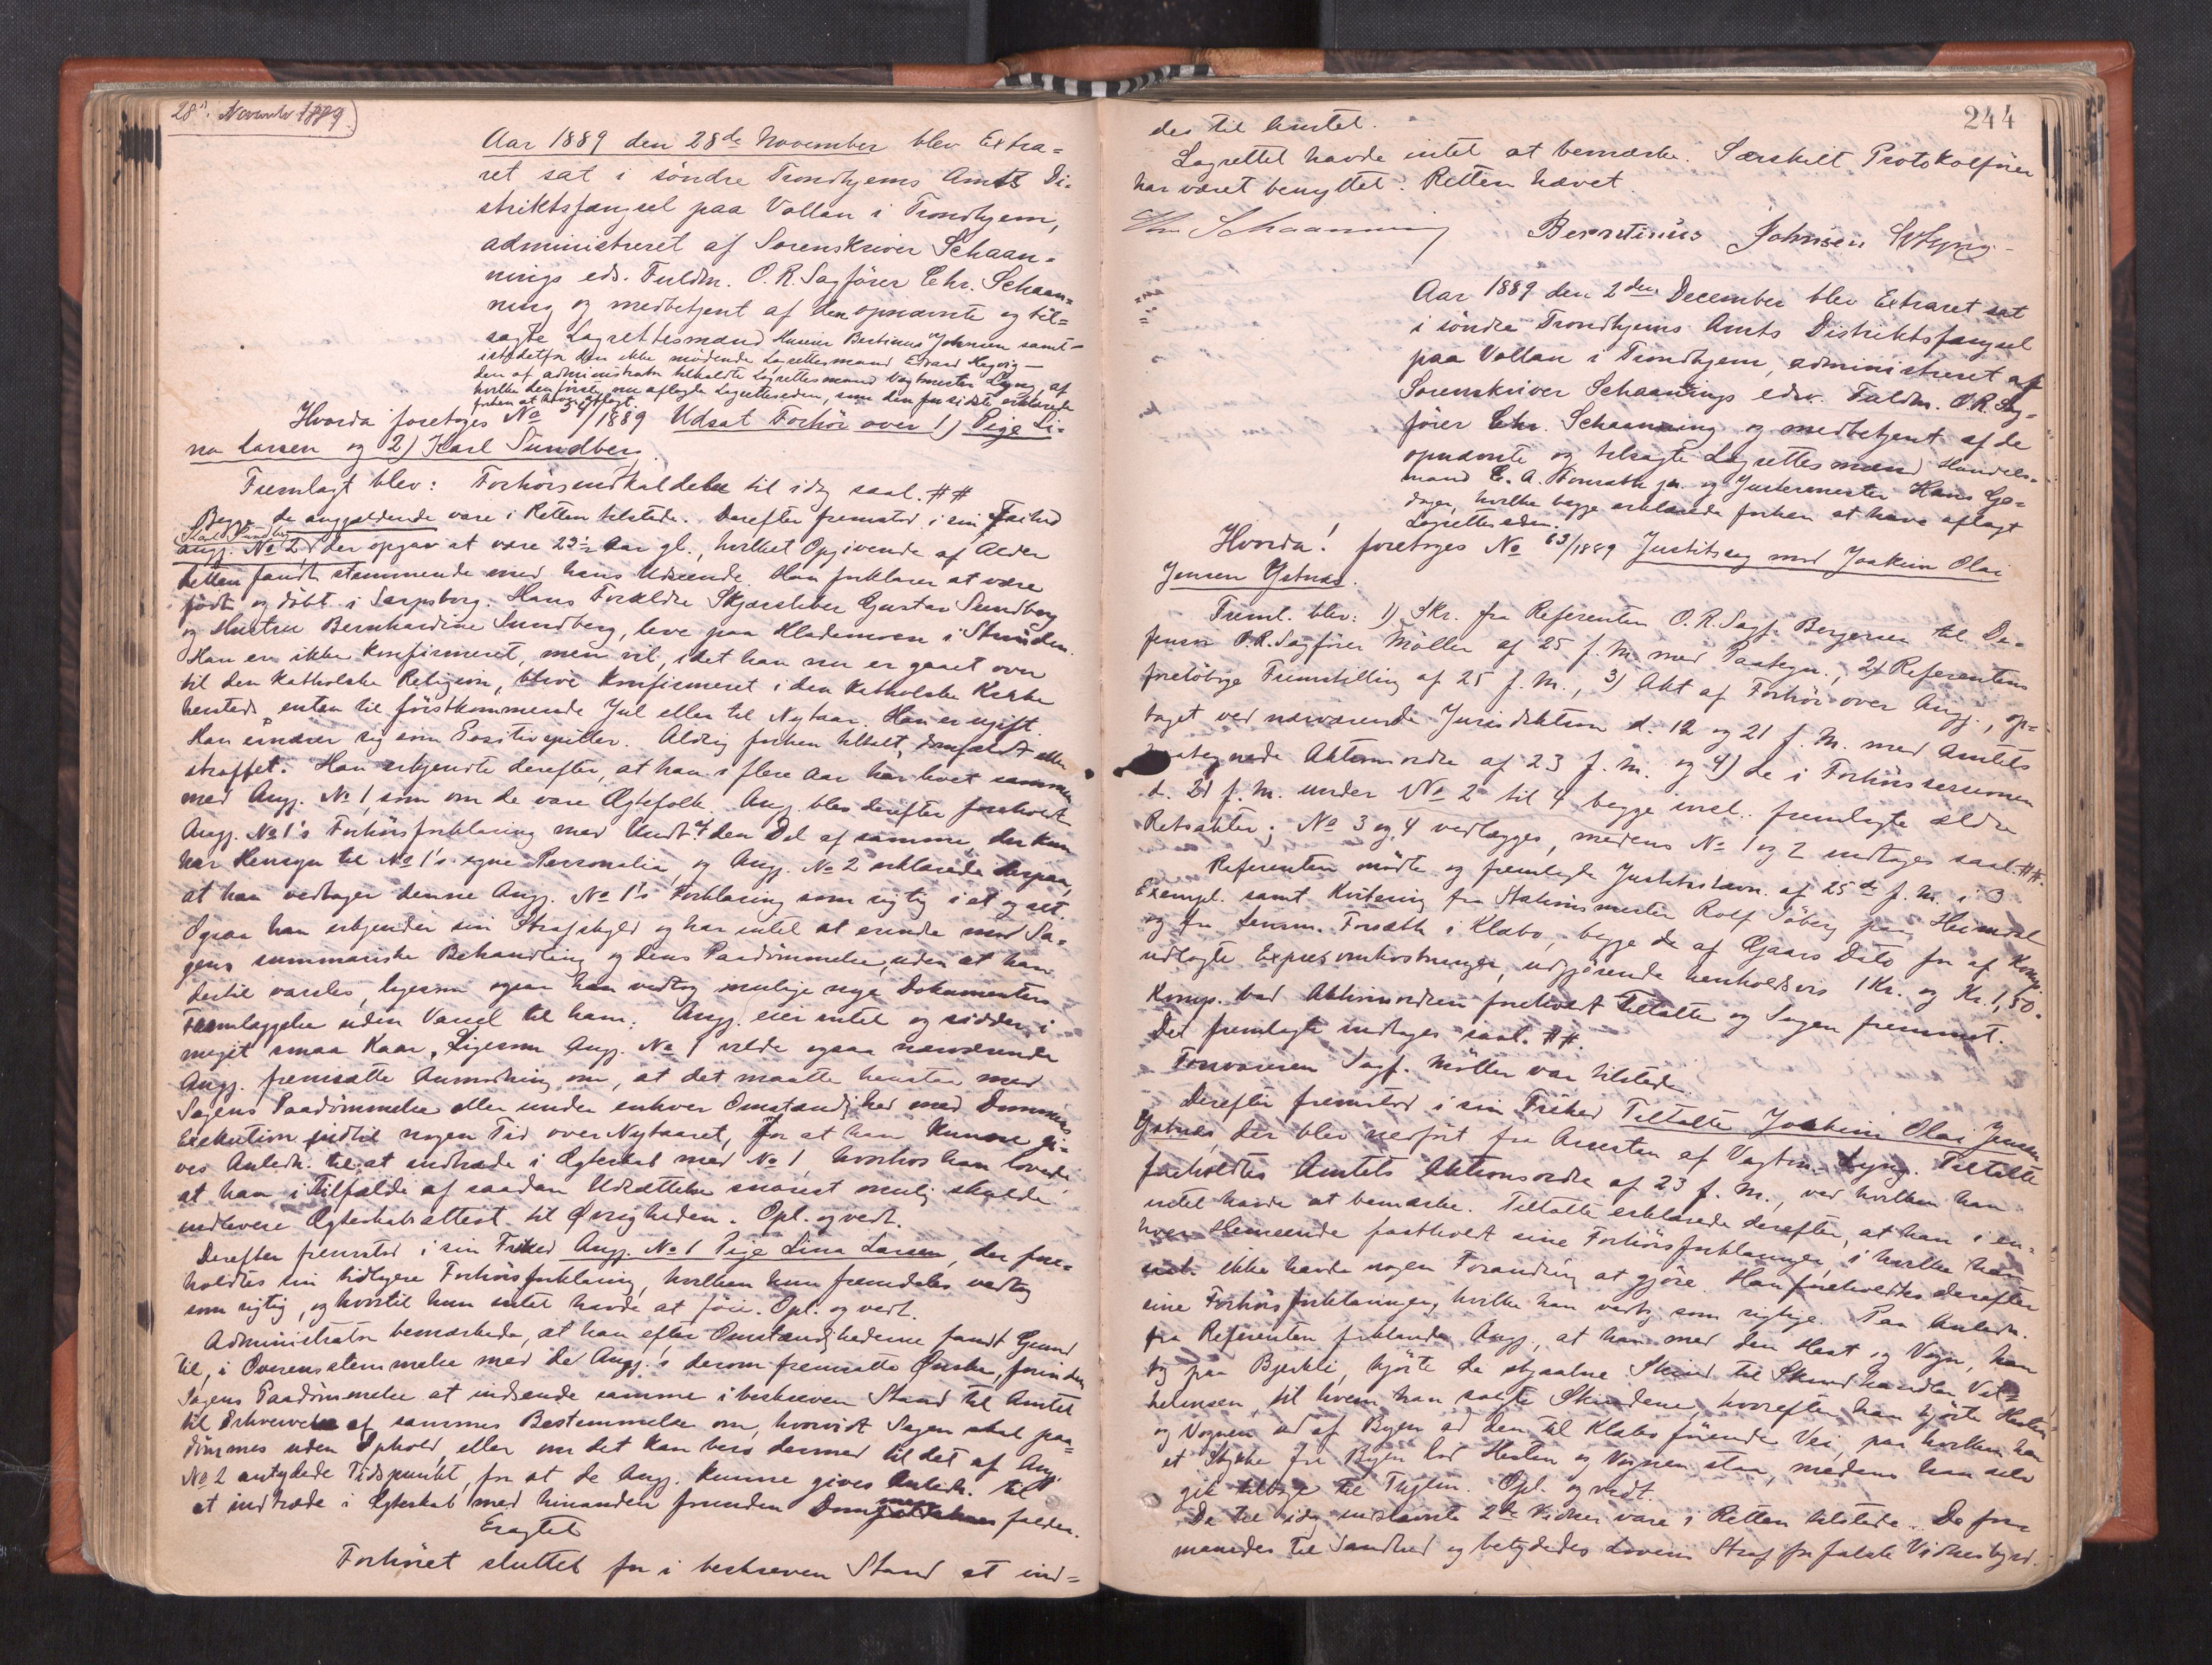 28' November 1889
Aar 1889 den 28de November blev Extra=
ret sat i söndre Trondhjems Amts Di=
striktsfængsel paa Vollan i Trondhjem,
administreret af Sorenskriver Schaan=
nings eds. Fuldm. O.R. Sagförer Chr. Schaan=
ning og medbetjent af den opnævnte og til=
sagte Lagrettesmand Huseier Bertinus Johnsen samt =
istedetfor den ikke mødende Lagrettesmand Edvard Hagvig —
den af administrator tilkaldte Lagrettesmand Vagtmester Lyng, af
hvilke den første nu aflagde Lagretteseden, som den sidste erklærede
forhen at have aflagt.
Hvorda foretoges No 54/1889 Udsat Forhör over 1) Pige Li=
na Larsen og 2) Karl Sundberg.
Fremlagt blev: Forhörsindkaldelse til idag saal. ##
Begge de angjældende vare i Retten tilstede. Derefter fremstod i sin Frihed
Karl Sundberg
angj. No 2, der opgav at være 23½ Aar gl., hvilket Opgivende af Alder
Retten fandt stemmende med hans Udseende. Han forklarer at være
født og døbt i Sarpsborg. Hans Forældre Skjærsliber Gustav Sundberg
og Hustru Bernhardine Sundberg, leve paa Hlademoen i Strinden.
Han er ikke konfirmeret, men vil, idet han nu er gaaet over
til den katholske Religion, blive konfirmeret i den katholske Kirke
hersteds enten til førstkommende Jul eller til Nytaar. Han er ugift.
Han ernærer sig som Positivspiller. Aldrig forhen tiltalt, domfældt eller
straffet. Han erkjendte derefter, at han i flere Aar har levet sammen
med Angj. No 1, som om de vare Ægtefolk. Angj. blev derefter foreholdt
Angj. No 1's Forhörsforklaring med Undt. af den Del af samme, der kun
har Hensyn til No 1's egne Personalia, og Angj. No 2 erklærede derpaa,
at han vedtager denne Angj. No 1's Forklaring som rigtig i et og alt.
Ogsaa han erkjender sin Strafskyld og har intet at erindre mod Sa=
gens summariske Behandling og dens Paadömmelse, uden at han
dertil varsles, ligesom ogsaa han vedtog mulige nye Dokumenters
Fremlæggelse uden Varsel til ham. Angj. eier intet og sidder i
meget smaa Kaar. Ligesom Angj. No 1 vilde ogsaa nærværende
Angj. fremsætte Anmodning om, at det maatte henstaa med
Sagens Paadömmelse eller under enhver Omstændighed med Dommens
Exekution indtil nogen Tid over Nytaaret, for at han kunne gi=
ves Anledn. til at indtræde i Ægteskab med No 1, hvorhos han lovede
at han i Tilfælde af saadan Udsættelse snarest mulig skulde
indlevere Ægteskabsattest til Øvrigheden. Opl. og vedt.
Derefter fremstod i sin Frihed Angj. No 1 Pige Lina Larsen, der fore=
holdtes sin tidligere Forhörsforklaring, hvilken hun fremdeles vedtog
som rigtig, og hvortil hun intet havde at föie. Opl. og vedt.
Administrator bemærkede, at han efter Omstændighederne fandt Grund
til, i Overensstemmelse med de Angj.'s derom fremsatte Ønske, forinden
Sagens Paadömmelse at indsende samme i beskreven Stand til Amtet
til Erhvervelse af sammes Bestemmelse om, hvorvidt Sagen skal paa=
dömmes uden Ophold, eller om det kan bero dermed til det af Angj.
No 2 antydede Tidspunkt, for at de Angj. kunne gives Anledn. til
at indtræde i Ægteskab med hinanden forinden Dommen falder.
Eragtet
Forhöret sluttet for i beskreven Stand at ind=
244
des til Amtet.
Lagrettet havde intet at bemærke. Særskilt Protokolförer
har været benyttet. Retten hævet.
Chr Schaanning Berntinus Johnsen Lyng
Aar 1889 den 2den December blev Extraret sat
i söndre Trondhjems Amts Distriktsfængsel
paa Vollan i Trondhjem, administreret af
Sorenskriver Schaanings edsv. Fuldm. O.R. Sag=
förer Chr. Schaanning og medbetjent af de
opnævnte og tilsagte Lagrettesmænd Handels=
mand C. A. Tomrath jr. og Justermester Hans Ge=
dager, hvilke begge erklærede forhen at have aflagt
Lagretteseden.
Hvorda! foretoges No 63/1889 Justitssag mod Joakim Olai
Jensen Ystnæs.
Freml. blev: 1) Skr. fra Referenten O.R. Sagf. Bergersen til De=
fensor O.R. Sagförer Möller af 25 f. M. med Paategn., 2) Referentens
foreløbige Fremstilling af 25 f. M., 3) Akt af Forhör over Angj., op=
taget ved nærværende Jurisdiktion d. 12 og 21 f. M. med Amtets
paategnede Aktionsordre af 23 f. M. og 4) de i Forhörssessionen
d. 21 f. M. under No 2 til 4 begge incl. fremlagte ældre
Retsakter; No 3 og 4 vedlægges, medens No 1 og 2 indtages saal. ##.
Referenten mødte og fremlagde Justitsstævn. af 25de f. M. i 3
Exempl. samt Kvitering fra Stationsmester Rolf Söberg paa Heimdal
og fra Lensm. Forsæth i Klæbo, begge de af Gaars Dato for af Komp.
udlagte Expresomkostninger, udgjörende henholdsvis 1 Kr. og Kr. 1,50.
Komp. bad Aktionsordren foreholdt Tiltalte og Sagen fremmet.
Det fremlagte indtages saal. ##.
Forsvareren Sagf. Möller var tilstede.
Derefter fremstod i sin Frihed Tiltalte Joakim Olai Jensen
Ystnæs, der blev nedfört fra Arresten af Vagtm. Lyng. Tiltalte
foreholdtes Amtets Aktionsordre af 23 f. M., ved hvilken han
intet havde at bemærke. Tiltalte erklærede derefter, at han i en=
hver Henseende fastholdt sine Forhörsforklaringer, i hvilke han
ikke havde nogen Forandring at gjöre. Han foreholdtes derefter
sine Forhörsforklaringer, hvilke han vedtog som rigtige. Paa Anledn.
fra Referenten forklarede Angj., at han med den Hest og Vogn, han
tog paa Bjerkli, kjörte de stjaalne Skind til Skindhandler Vil=
helmsen, til hvem han solgte Skindene, hvorefter han kjörte Hesten
og Vognen ud af Byen ad den til Klæbo förende Vei, paa hvilken han
et Stykke fra Byen lod Hesten og Vognen staa, medens han selv
gik tilbage til Byen. Opl. og vedt.
De til idag indstævnte 2de Vidner vare i Retten tilstede. De for=
manedes til Sandhed og betydedes Lovens Straf for falskt Vidnesbyrd.